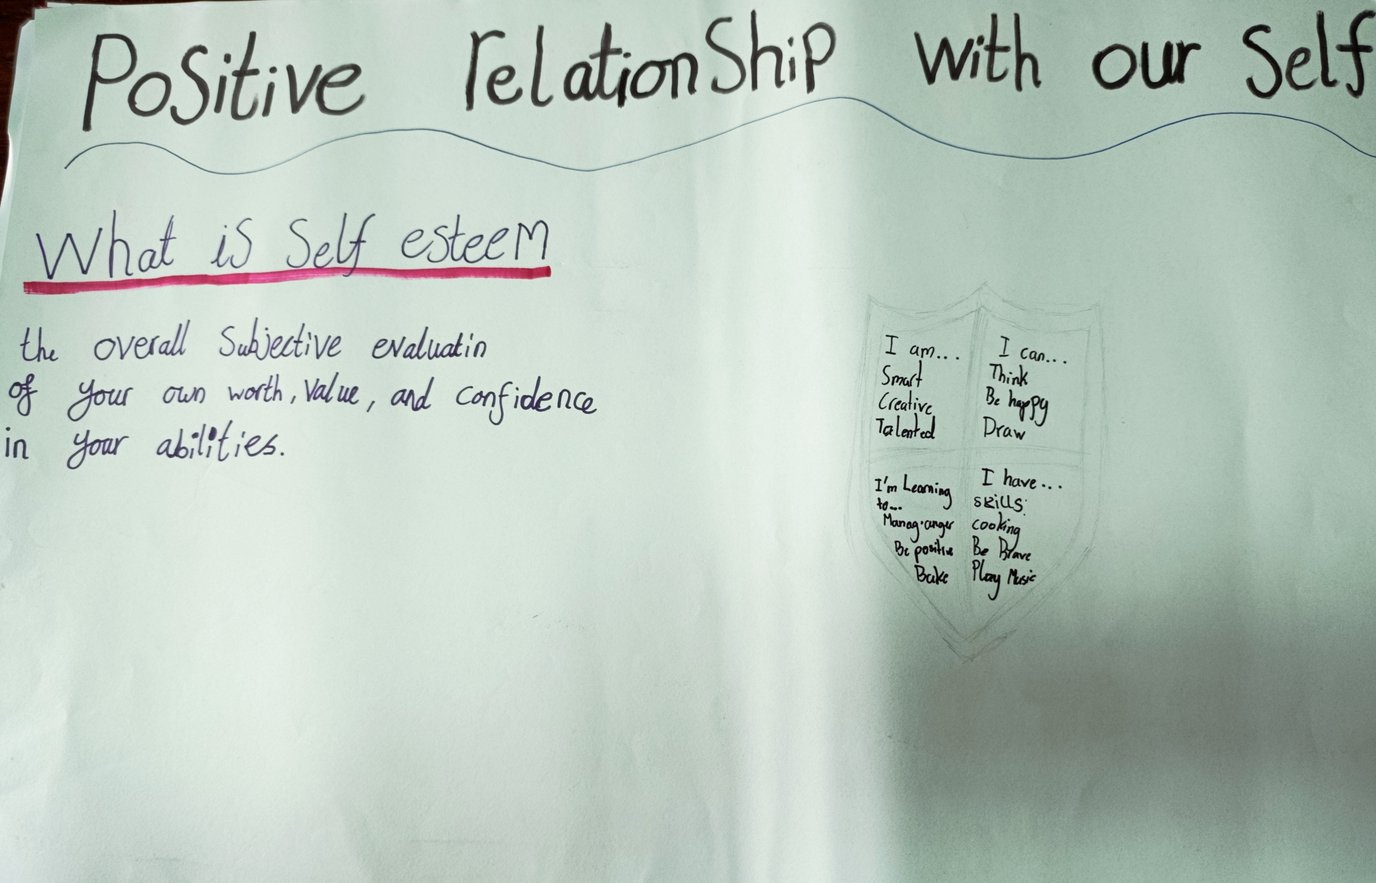 Positive relationShip with our Self
What is Self esteem
the overall Subjective evaluatin
of your own worth, Value, and confidence
in your abilities.
I am...
Smart
Creative
Talented
I can...
Think
Be happy
Draw
I'm Learning
to...
Manag.anger
Be positive
Bake
I have...
skills
cooking
Be Brave
Play Music